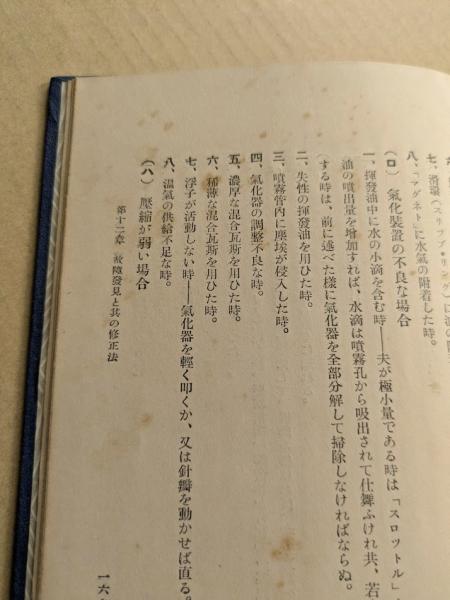 七、滑環(スリップ・リング)に
八、「マグネト」に水氣の附着した時。
(ロ) 氣化裝置の不良な場合
一、揮發油中に水の小滴を含む時——夫が極小量である時は「スロットル」
油の噴出量を增加すれば、水滴は噴霧孔から吸出されて仕舞ふけれ共、若
する時は、前に述べた樣に氣化器を全部分解して掃除しなければならぬ。
二、失性の揮發油を用ひた時。
三、噴霧管內に塵埃が侵入した時。
四、氣化器の調整不良な時。
五、濃厚な混合瓦斯を用ひた時。
六、稀薄な混合瓦斯を用ひた時。
七、浮子が活動しない時——氣化器を輕く叩くか、又は針瓣を動かせば直る。
八、溫氣の供給不足な時。
(ハ) 壓縮が弱い場合
第十二章 故障發見と其の修正法
一六